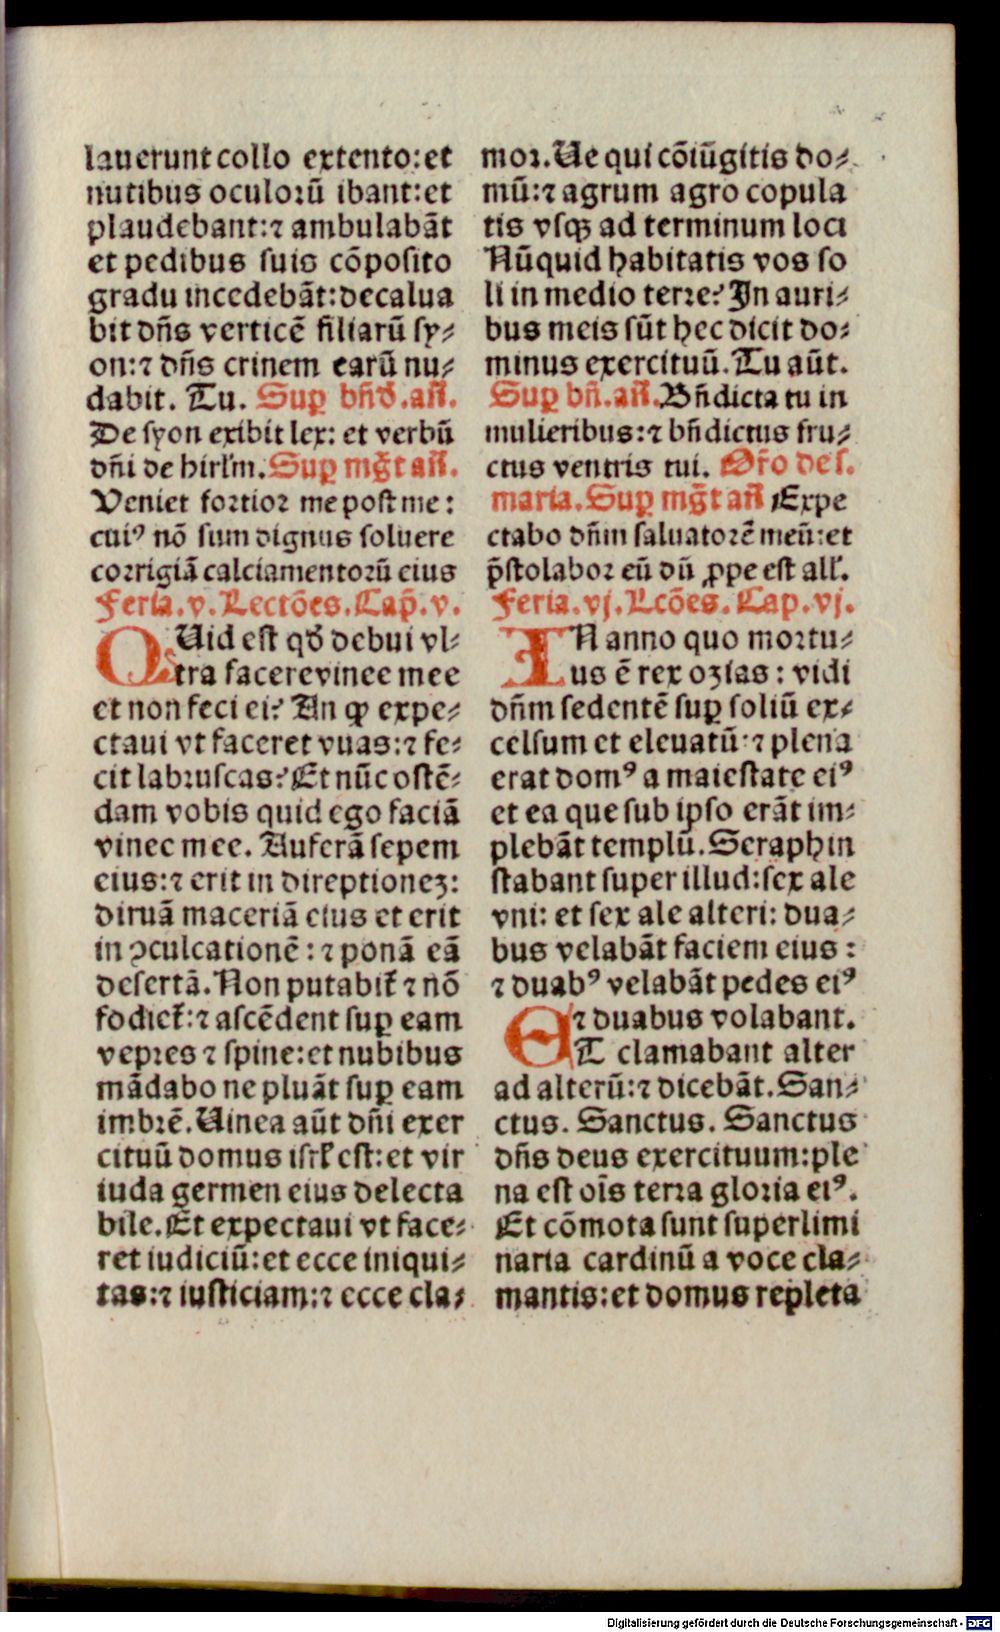 lauerunt collo extento: et
nutibus oculoꝛū ibant: et
plaudebant: ⁊ ambulabāt
et pedibus suis cōposito
gradu incedebāt: decalua
bit dn̄s verticē filiarū sy⸗
on: ⁊ dn̄s crinem earū nu⸗
dabit. Tu. Suꝑ bn̄d. an̄.
De syon exibit lex: et verbū
dn̄i de hirlʼm. Suꝑ mg̅t an̄.
Veniet foꝛtioꝛ me post me:
cuiꝰ nō sum dignus soluere
coꝛrigiā calciamentoꝛū eius
Feria. v. Lectōes. Cap̄. v.
QUid est qđ debui vl⸗
tra facere vinee mee
et non feci ei? An ꝙ expe⸗
ctaui vt faceret vuas: ⁊ fe⸗
cit labꝛuscas? Et nūc ostē⸗
dam vobis quid ego faciā
vinee mee. Auferā sepem
eius: ⁊ erit in direptioneʒ:
diruā maceriā eius et erit
in ꝯculcationē: ⁊ ponā eā
desertā. Non putabit̄ ⁊ nō
fodiet̄: ⁊ ascēdent suꝑ eam
vepꝛes ⁊ spine: et nubibus
mādabo ne pluāt suꝑ eam
imbꝛē. Uinea aūt dn̄i exer
cituū domus isrl̄ est: et vir
iuda germen eius delecta
bile. Et expectaui vt face⸗
ret iudiciū: et ecce iniqui⸗
tas: ⁊ iusticiam: ⁊ ecce cla⸗
moꝛ. Ue qui cōiūgitis do⸗
mū: ⁊ agrum agro copula
tis vsqꝫ ad terminum loci
Nūquid habitatis vos so
li in medio terre? In auri⸗
bus meis sūt hec dicit do⸗
minus exercituū. Tu aūt.
Suꝑ bn̄. an̄. Bn̄dicta tu in
mulieribus: ⁊ bn̄dictus fru⸗
ctus ventris tui. Or̄o de s.
maria. Suꝑ mg̅t an̄ Expe
ctabo dn̄m saluatoꝛē meū: et
p̄stolaboꝛ eū dū ꝓpe est all̄.
Feria. vj. Lcōes. Cap. vj.
IN anno quo moꝛtu⸗
us ē rex oʒias: vidi
dn̄m sedentē suꝑ soliū ex⸗
celsum et eleuatū: ⁊ plena
erat domꝰ a maiestate eiꝰ
et ea que sub ipso erāt im⸗
plebāt templū. Seraphin
stabant super illud: sex ale
vni: et sex ale alteri: dua⸗
bus velabāt faciem eius:
⁊ duabꝰ velabāt pedes eiꝰ
⁊ duabus volabant.
ET clamabant alter
ad alterū: ⁊ dicebāt. San⸗
ctus. Sanctus. Sanctus
dn̄s deus exercituum: ple
na est oīs terra gloꝛia eiꝰ.
Et cōmota sunt superlimi
naria cardinū a voce cla⸗
mantis: et domus repleta
Digitalisierung gefördert durch die Deutsche Forschungsgemeinschaft - DFG